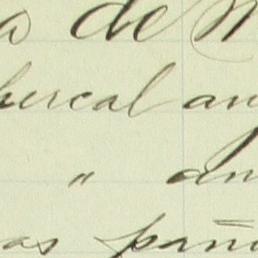 a de
percal an
" an
as pañu